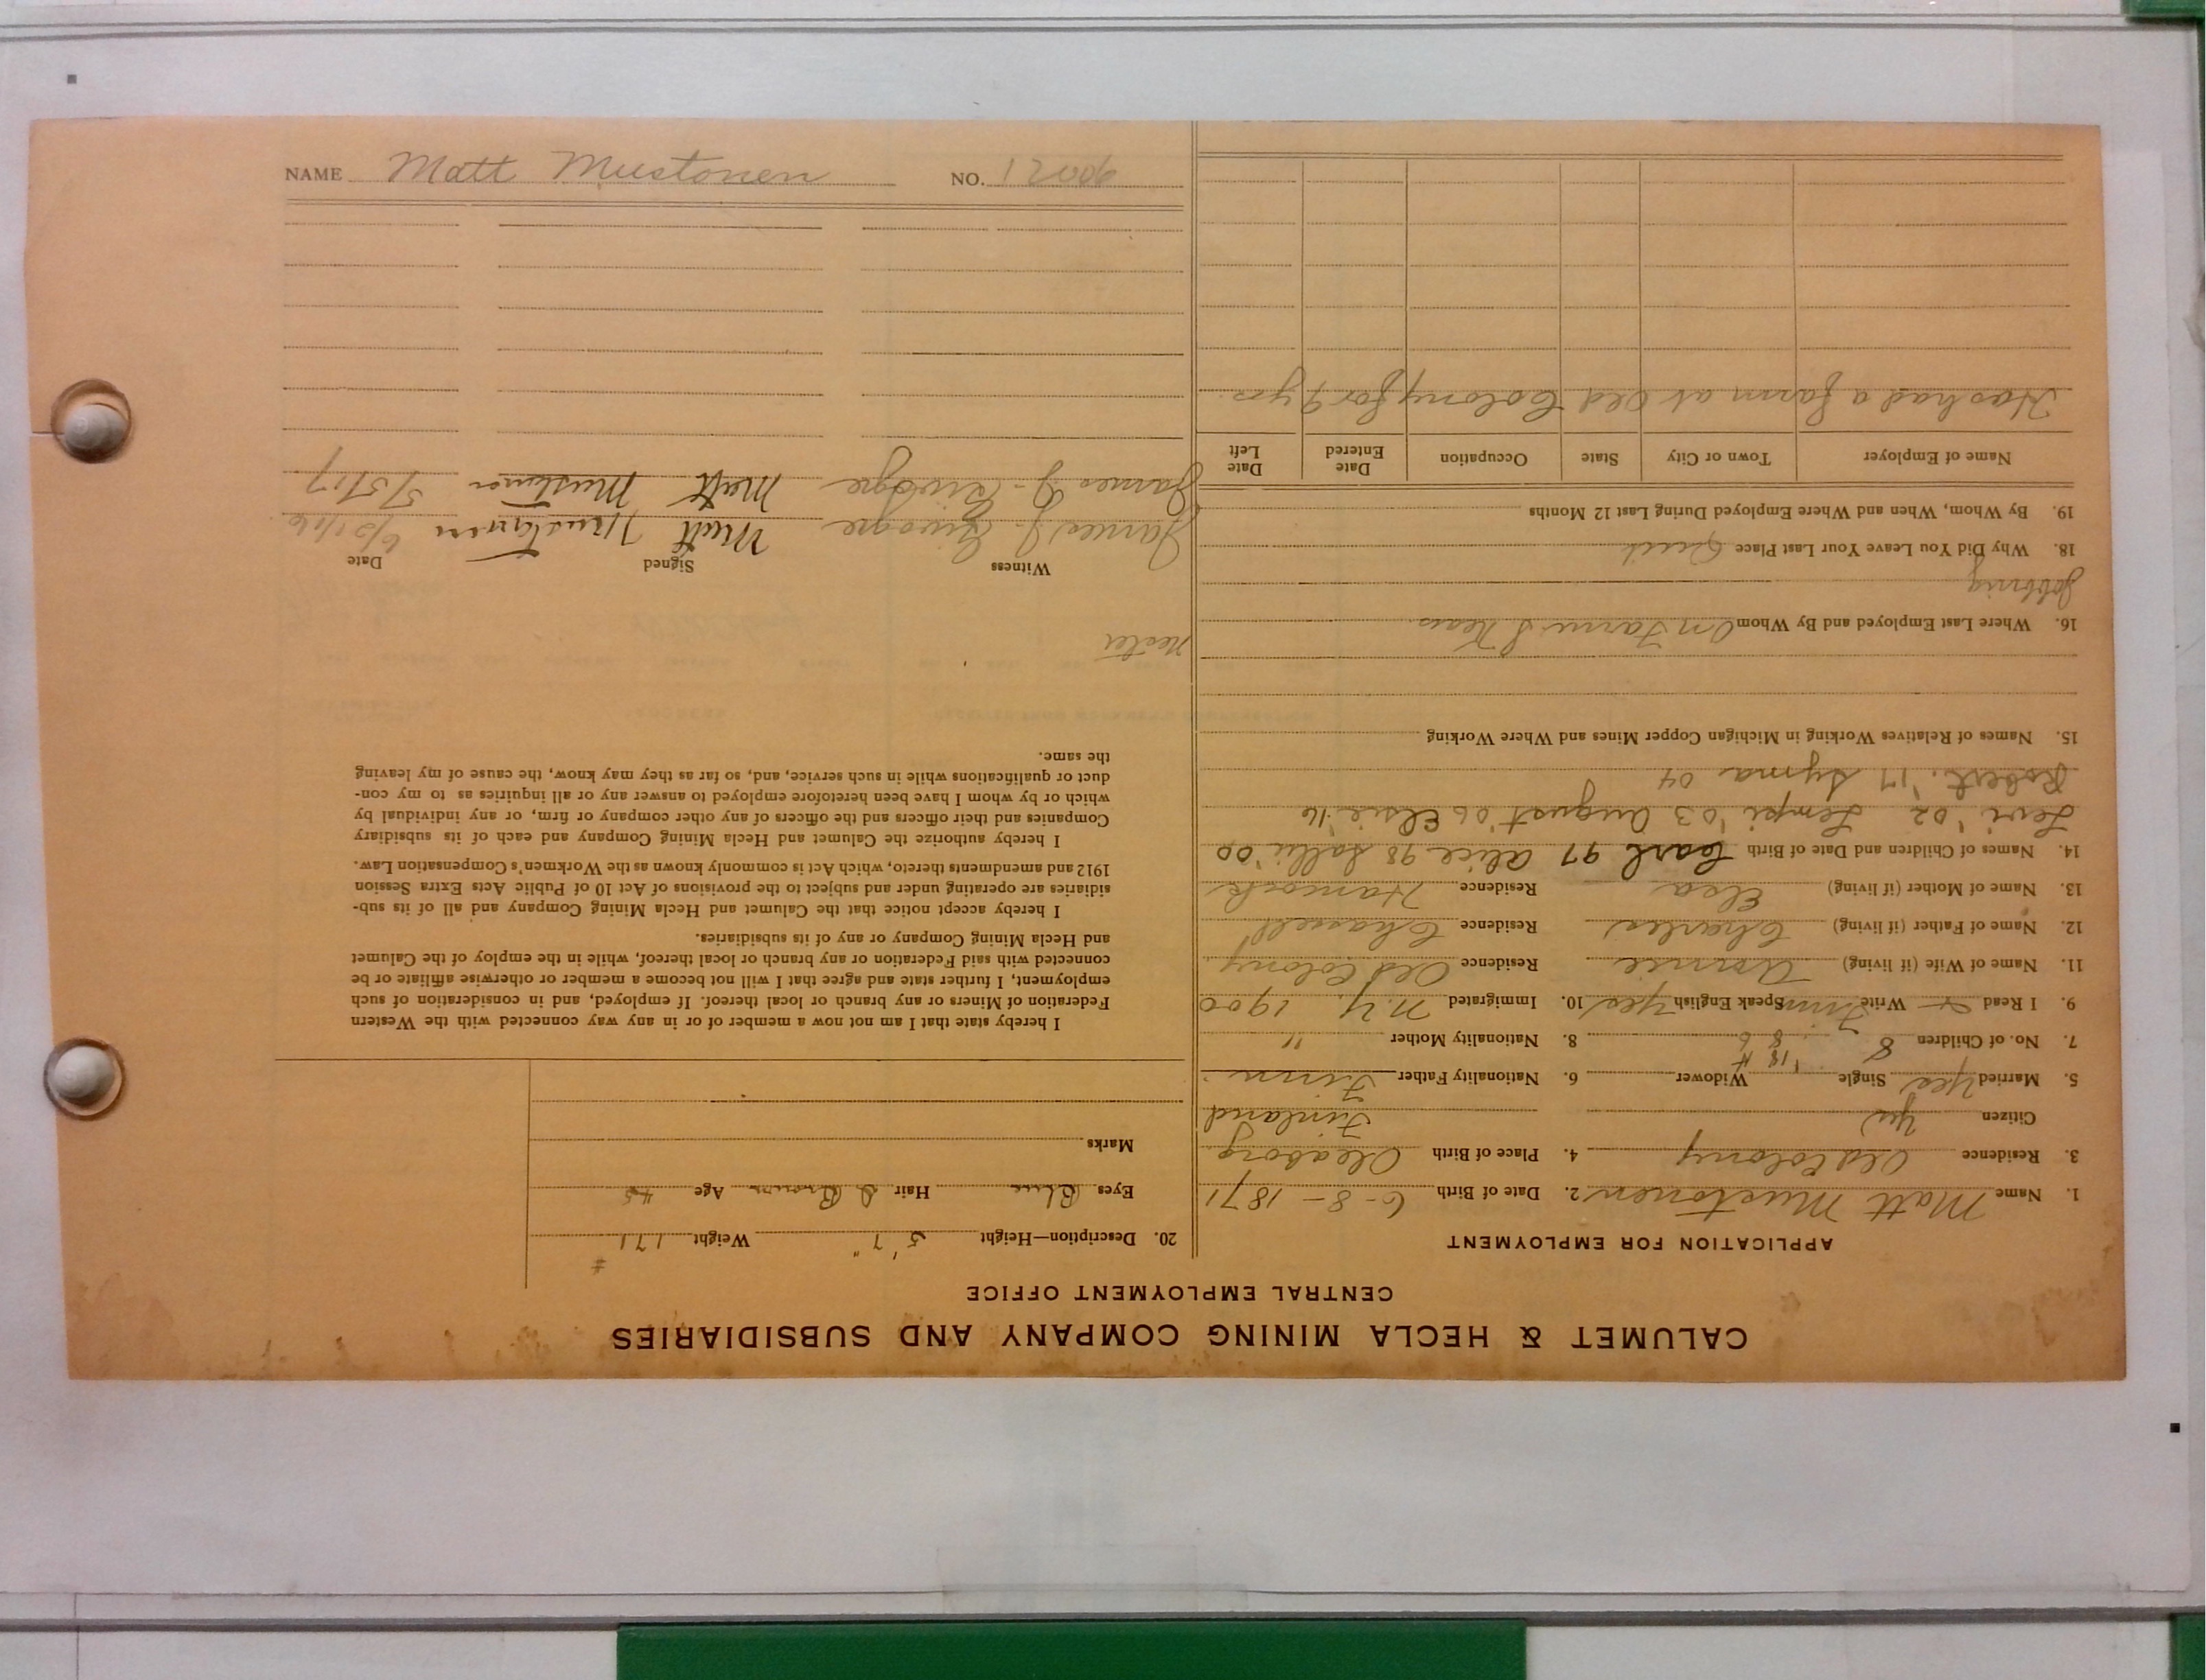 CALUMET & HECLA MINING COMPANY AND SUBSIDIARIES
CENTRAL EMPLOYMENT OFFICE
APPLICATION FOR EMPLOYMENT
1. Name Matt Mustonen 2. Date of Birth 6-8-1871
3. Residence Old Colony 4. Place of Birth Oleaborg
Citizen Yes Finland
5. Married Yes Single Widower 6. Nationality Father Finn
7. No. of Children 8 8. Nationality Mother "
9. I Read Write Finn Speak English Yes 10. Immigrated N.Y. 1900
11. Name of Wife (if living) Annie Residence Old Colony
12. Name of Father (if living) Charles Residence Chassell
13. Name of Mother (if living) Elsa Residence Hancock
14. Names of Children and Date of Birth Carl 97 Alice 98 '00
Levi '02 Lempi '03 August '06 Elsie '16
Robert '17 Syma 04
15. Names of Relatives Working in Michigan Copper Mines and Where Working
16. Where Last Employed and By Whom On Farm
Jobbing
18. Why Did You Leave Your Last Place Quit
19. By Whom, When and Where Employed During Last 12 Months
Name of Employer Town or City State Occupation Date Entered Date Left
Has had a farm at Old Colony for 9 yrs.
20. Description—Height 5' 7" Weight 171 #
Eyes Blue Hair D Brown Age 45
Marks
I hereby state that I am not now a member of or in any way connected with the Western
Federation of Miners or any branch or local thereof. If employed, and in consideration of such
employment, I further state and agree that I will not become a member or otherwise affiliate or be
connected with said Federation or any branch or local thereof, while in the employ of the Calumet
and Hecla Mining Company or any of its subsidiaries.
I hereby accept notice that the Calumet and Hecla Mining Company and all of its sub-
sidiaries are operating under and subject to the provisions of Act 10 of Public Acts Extra Session
1912 and amendments thereto, which Act is commonly known as the Workmen's Compensation Law.
I hereby authorize the Calumet and Hecla Mining Company and each of its subsidiary
Companies and their officers and the officers of any other company or firm, or any individual by
which or by whom I have been heretofore employed to answer any or all inquiries as to my con-
duct or qualifications while in such service, and, so far as they may know, the cause of my leaving
the same.
Witness Signed Date
James J. Matt Mustonen
James J. Matt Mustonen 5/5/17
NAME Matt Mustonen NO. 12006